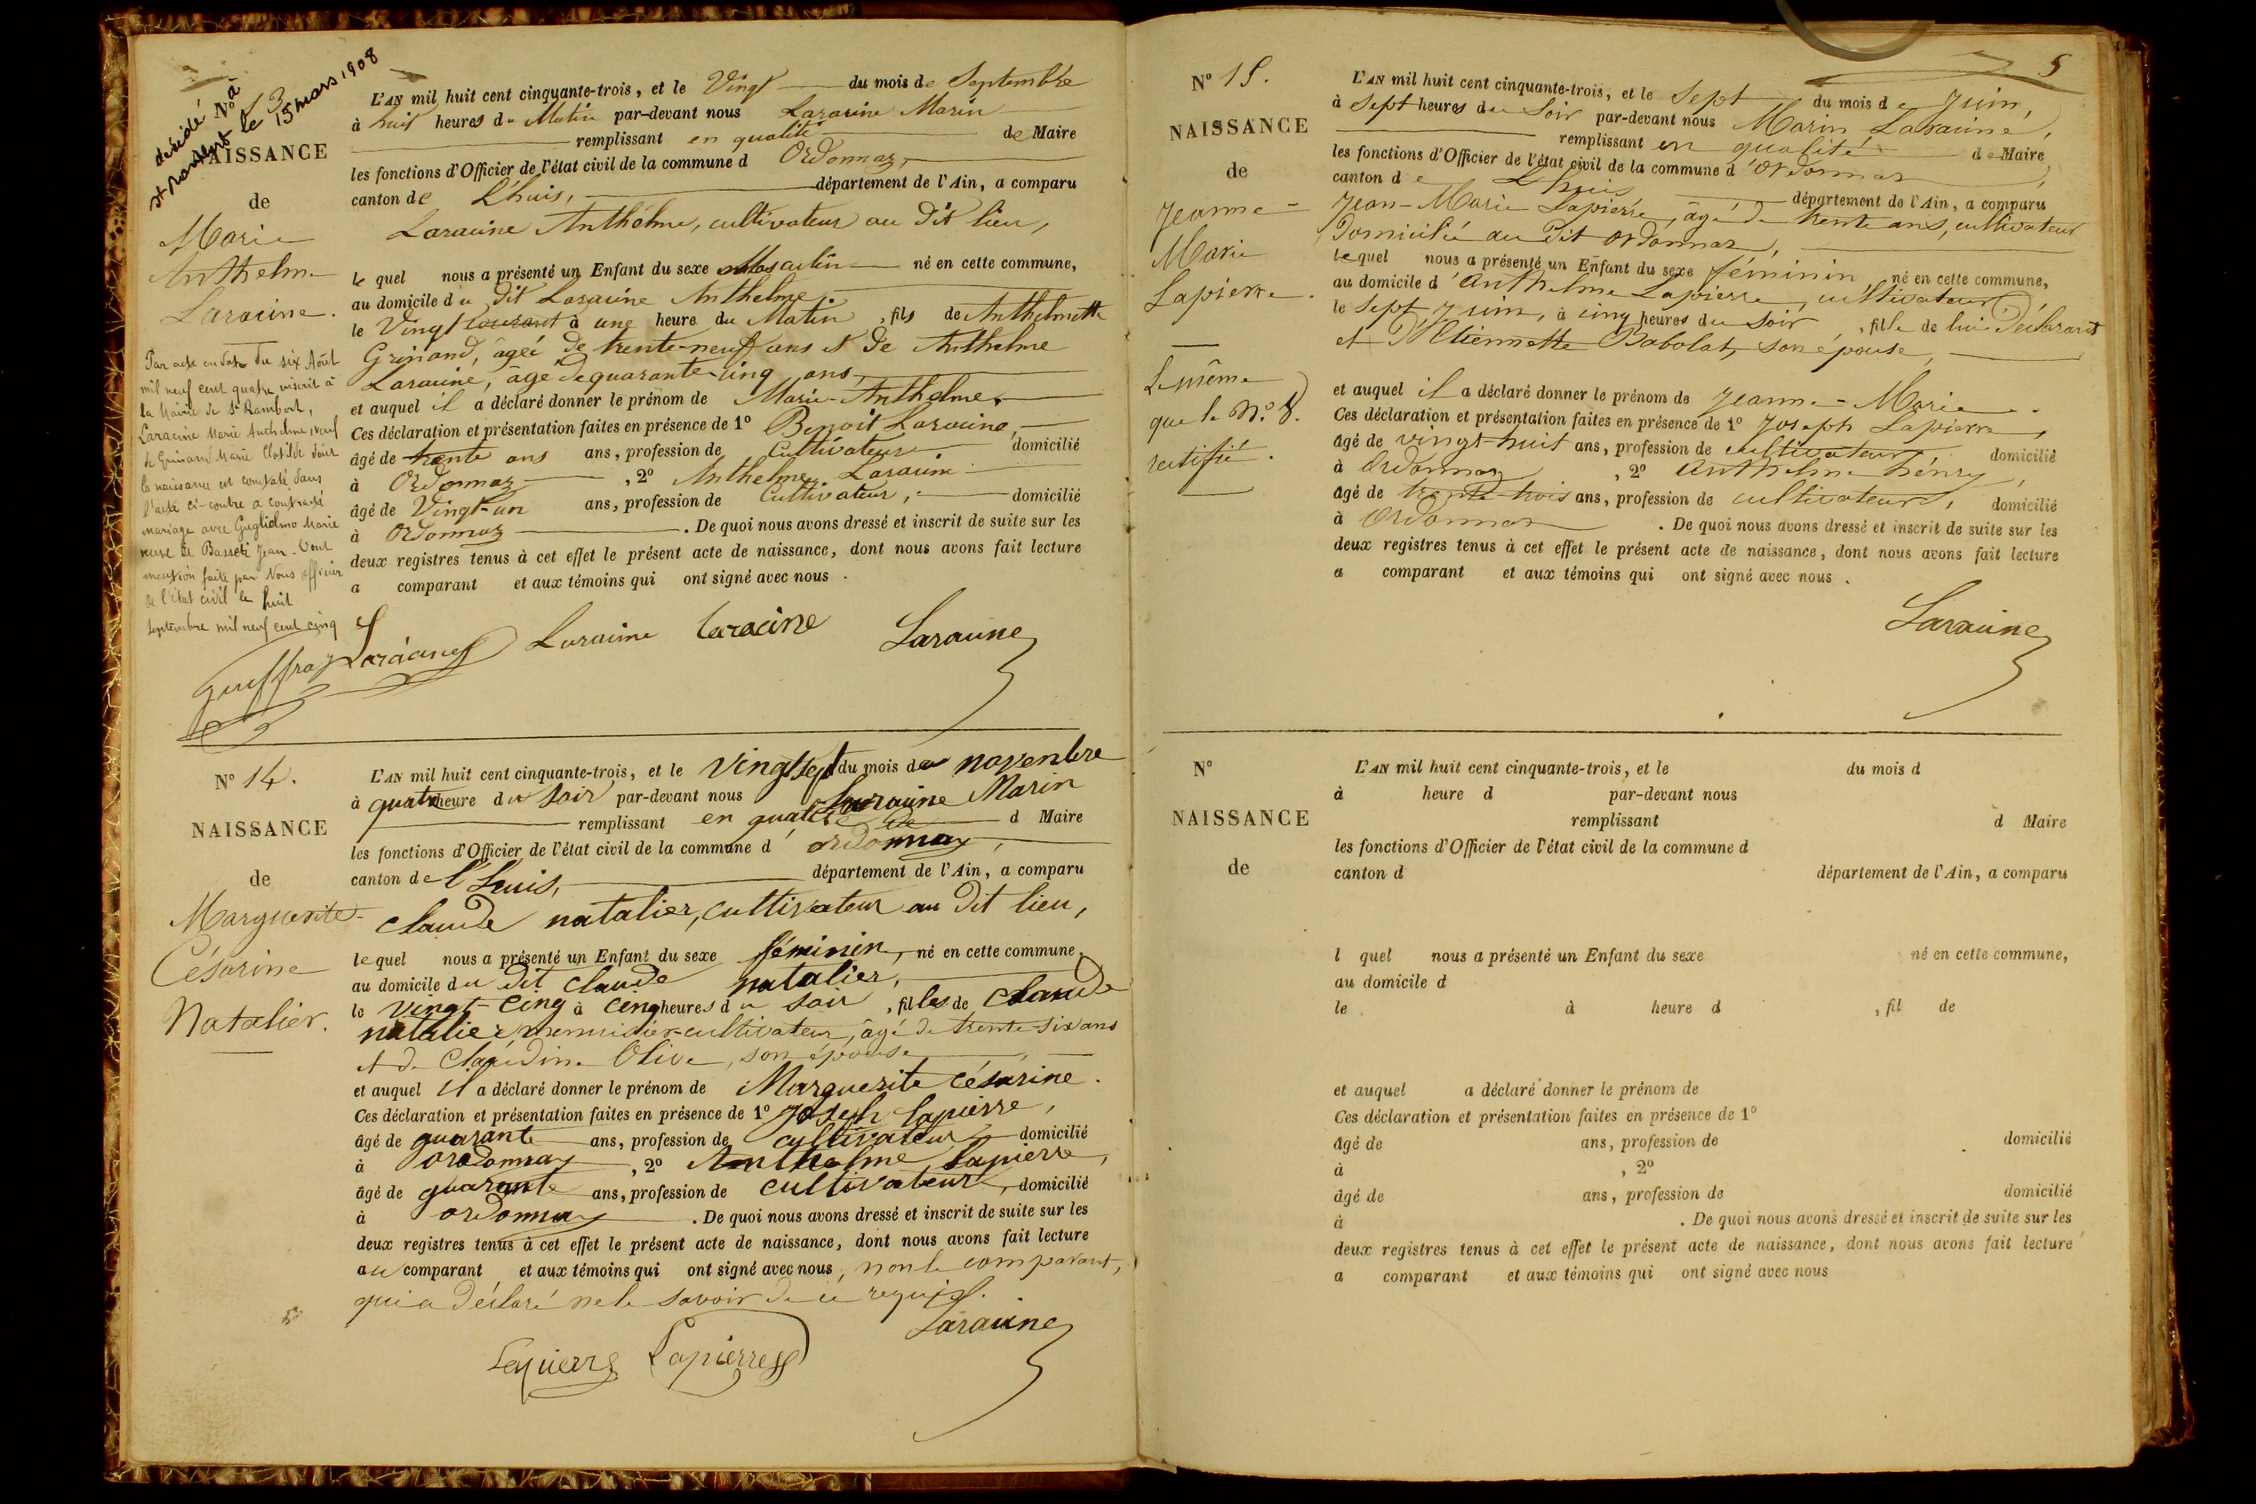 décédé à
St Rambert le 15 mars 1908
No 13
NAISSANCE
de
Marie
Anthelme
Laracine.
Par acte en date du six Août
mil neuf cent quatre inscrit à
la Mairie de St Rambert,
Laracine Marie Anthelme, veuf
de Grinand Marie Clotilde dont
la naissance est constatée dans
l'acte ci-contre a contracté
mariage avec Guglielmo Marie
veuve de Basseti Jean. Dont
mention faite par Nous officier
de l'état civil le huit
septembre mil neuf cent cinq
L'AN mil huit cent cinquante-trois, et le Vingt du mois de Septembre
à huit heures du Matin par-devant nous Laracine Marin
remplissant en qualité de Maire
les fonctions d'Officier de l'état civil de la commune d Ordonnaz,
canton de L'huis, département de l'Ain, a comparu
Laracine Anthelme, cultivateur au dit lieu,
le quel nous a présenté un Enfant du sexe Masculin né en cette commune,
au domicile du dit Laracine Anthelme,
le Vingt courant à une heure du Matin, fils de Anthelmette
Grinand, âgée de trente-neuf ans et de Anthelme
Laracine, âgé de quarante-cinq ans,
et auquel il a déclaré donner le prénom de Marie-Anthelme,
Ces déclaration et présentation faites en présence de 1o Benoit Laracine,
âgé de trente ans ans, profession de Cultivateur domicilié
à Ordonnaz, 2o Anthelme Laracine
âgé de Vingt-un ans, profession de Cultivateur, domicilié
à Ordonnaz. De quoi nous avons dressé et inscrit de suite sur les
deux registres tenus à cet effet le présent acte de naissance, dont nous avons fait lecture
a comparant et aux témoins qui ont signé avec nous.
Laracine Laracine laracine Laracine
No 14.
NAISSANCE
de
Marguerite-
Césarine
Natalier.
L'AN mil huit cent cinquante-trois, et le Vingt sept du mois de novembre
à quatre heure du soir par-devant nous Laracine Marin
remplissant en qualité de d Maire
les fonctions d'Officier de l'état civil de la commune d'ordonnaz,
canton de l'huis, département de l'Ain, a comparu
claude natalier, cultivateur au dit lieu,
lequel nous a présenté un Enfant du sexe féminin, né en cette commune,
au domicile du dit claude natalier,
le vingt-cinq à cinq heures du soir, filles de claude
natalier menuisier-cultivateur, âgé de trente-six ans
et de Claudine Olive, son épouse,
et auquel il a déclaré donner le prénom de Marguerite césarine.
Ces déclaration et présentation faites en présence de 1o Joseph lapierre,
âgé de quarante ans, profession de cultivateur domicilié
à ordonnaz, 2o Anthelme lapierre,
âgé de quarante ans, profession de cultivateur, domicilié
à ordonnaz. De quoi nous avons dressé et inscrit de suite sur les
deux registres tenus à cet effet le présent acte de naissance, dont nous avons fait lecture
au comparant et aux témoins qui ont signé avec nous, non le comparant,
qui a déclaré ne le savoir de ce requis.
Lapierre Lapierre Laracine
5
No 15.
NAISSANCE
de
Jeanne-
Marie
Lapierre.
Le même
que le No. 8.
rectifié.
L'AN mil huit cent cinquante-trois, et le sept du mois de Juin,
à sept heures du soir par-devant nous Marin Laracine,
remplissant en qualité de Maire
les fonctions d'Officier de l'état civil de la commune d'Ordonnaz,
canton de L'huis département de l'Ain, a comparu
Jean-Marie Lapierre, âgé de trente ans, cultivateur
domicilié au dit ordonnaz,
lequel nous a présenté un Enfant du sexe féminin, né en cette commune,
au domicile d'Anthelme Lapierre, cultivateur
le sept Juin, à cinq heures du soir, fille de lui Déclarant
et d'Etiennette Babolat, son épouse,
et auquel il a déclaré donner le prénom de Jeanne-Marie.
Ces déclaration et présentation faites en présence de 1o Joseph Lapierre,
âgé de vingt-huit ans, profession de cultivateur domicilié
à Ordonnaz, 2o Anthelme hénry,
âgé de trente-trois ans, profession de cultivateur, domicilié
à Ordonnaz. De quoi nous avons dressé et inscrit de suite sur les
deux registres tenus à cet effet le présent acte de naissance, dont nous avons fait lecture
a comparant et aux témoins qui ont signé avec nous.
Laracine
No
NAISSANCE
de
L'AN mil huit cent cinquante-trois, et le du mois d
à heure d par-devant nous
remplissant d Maire
les fonctions d'Officier de l'état civil de la commune d
canton d département de l'Ain, a comparu
l quel nous a présenté un Enfant du sexe né en cette commune,
au domicile d
le à heure d , fil de
et auquel a déclaré donner le prénom de
Ces déclaration et présentation faites en présence de 1o
âgé de ans, profession de domicilié
à , 2o
âgé de ans, profession de domicilié
à . De quoi nous avons dressé et inscrit de suite sur les
deux registres tenus à cet effet le présent acte de naissance, dont nous avons fait lecture
a comparant et aux témoins qui ont signé avec nous